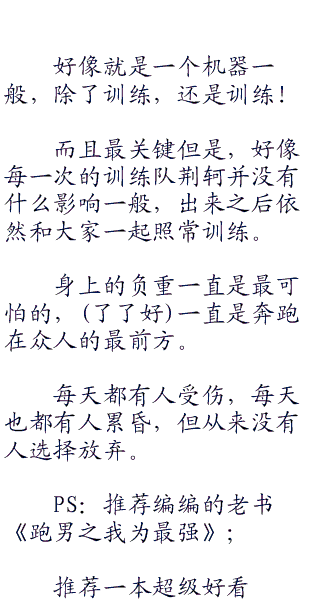 好像就是一个机器一
般，除了训练，还是训练！
而且最关键但是，好像
每一次的训练队荆轲并没有
什么影响一般，出来之后依
然和大家一起照常训练。
身上的负重一直是最可
怕的，(了了好)一直是奔跑
在众人的最前方。
每天都有人受伤，每天
也都有人累昏，但从来没有
人选择放弃。
PS：推荐编编的老书
《跑男之我为最强》；
推荐一本超级好看